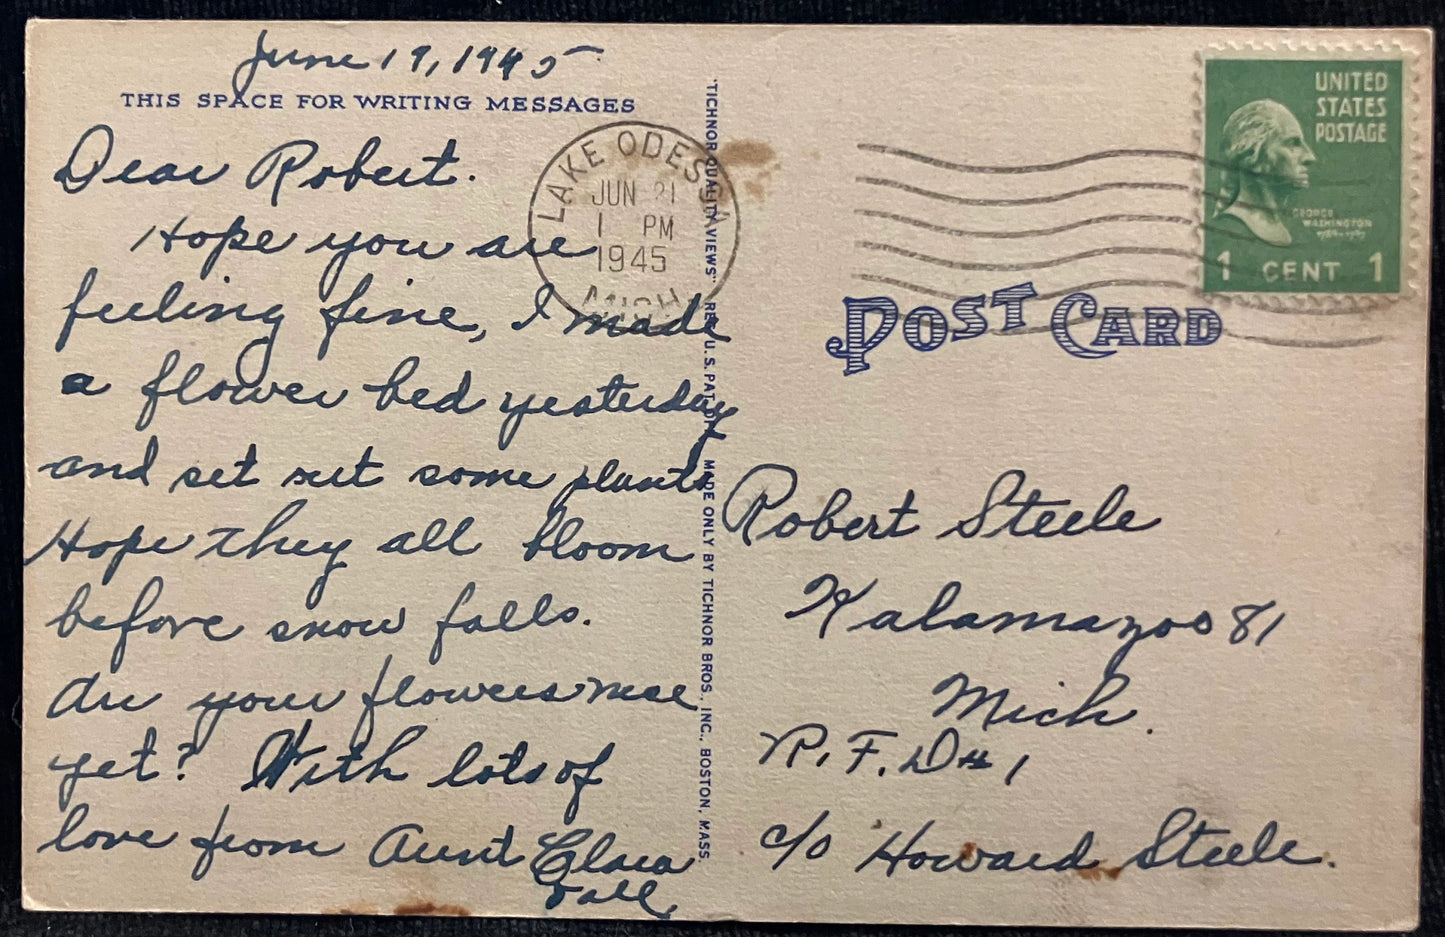 June 19, 1945
THIS SPACE FOR WRITING MESSAGES
Dear Robert.
Hope you are
feeling fine, I made
a flower bed yesterday
and set out some plants
Hope they all bloom
before snow falls.
Are your flowers nice
yet? With lots of
love from Aunt Clara
& all.
LAKE ODESSA
JUN 21
1 PM
1945
MICH.
"TICHNOR QUALITY VIEWS" REG. U. S. PAT. OFF. MADE ONLY BY TICHNOR BROS., INC., BOSTON, MASS.
UNITED
STATES
POSTAGE
GEORGE
WASHINGTON
1789-1797
1 CENT 1
POST CARD
Robert Steele
Kalamazoo 81
Mich.
R. F. D # 1
c/o Howard Steele.